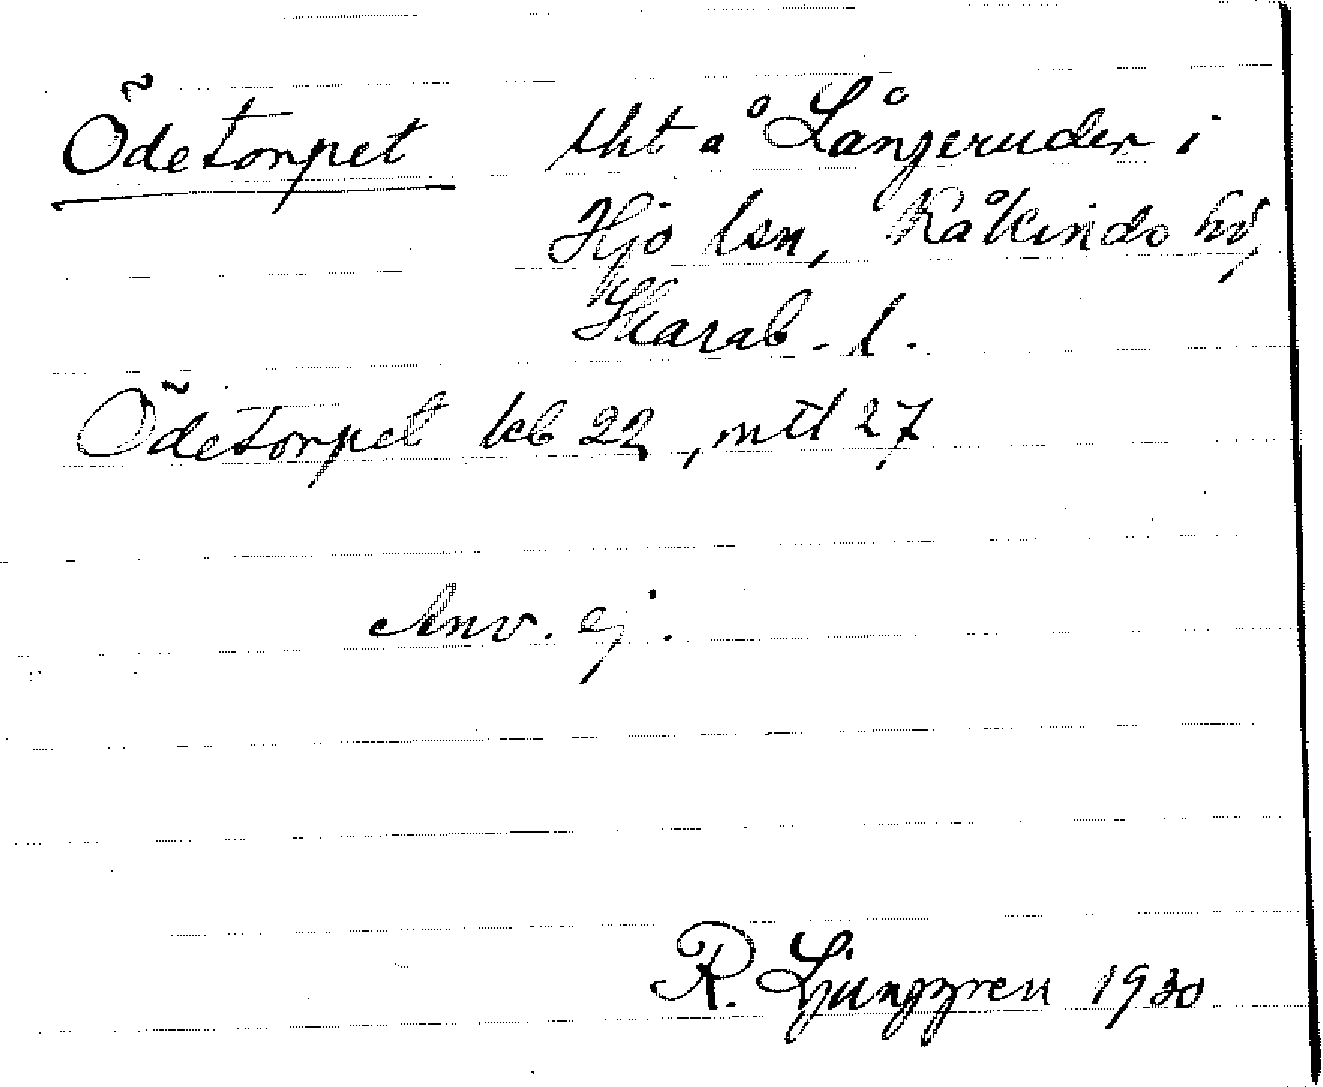 Ödetorpet tht å Långeruder i
Hjo lsn, Kåkinds hd,
Skarab. l.
Ödetorpet kb 22, mtl 27
Anv. ej.
R. Ljunggren 1930